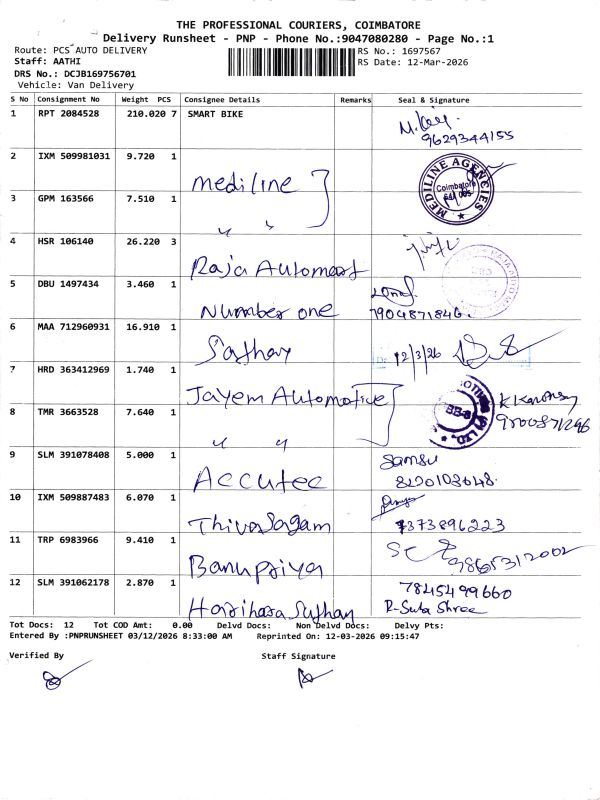 THE PROFESSIONAL COURIERS, COIMBATORE
Delivery Runsheet - PNP - Phone No.:9047080280 - Page No.:1
Route: PCS AUTO DELIVERY
RS No.: 1697567
Staff: AATHI
RS Date: 12-Mar-2026
DRS No.: DCJB169756701
Vehicle: Van Delivery
S No Consignment No Weight PCS Consignee Details Remarks Seal & Signature
1 RPT 2084528 210.020 7 SMART BIKE
9629344155
2 IXM 509981031 9.720 1 mediline
MEDILINE AGENCIES Coimbatore
3 GPM 163566 7.510 1 " "
4 HSR 106140 26.220 3 Raja Automart
5 DBU 1497434 3.460 1 Number one
7904871846
6 MAA 712960931 16.910 1 Sathay
12/3/26
7 HRD 363412969 1.740 1 Jayem Automotive
8 TMR 3663528 7.640 1 " "
9 SLM 391078408 5.000 1 Accutec
Samsu
10 IXM 509887483 6.070 1 ThivaSagam
7373896223
11 TRP 6983966 9.410 1 Banupriya
12 SLM 391062178 2.870 1 HariharaSuthan
7845499660
R-Suba Shree
Tot Docs: 12 Tot COD Amt: 0.00 Delvd Docs: Non Delvd Docs: Delvy Pts:
Entered By :PNPRUNSHEET 03/12/2026 8:33:00 AM Reprinted On: 12-03-2026 09:15:47
Verified By Staff Signature